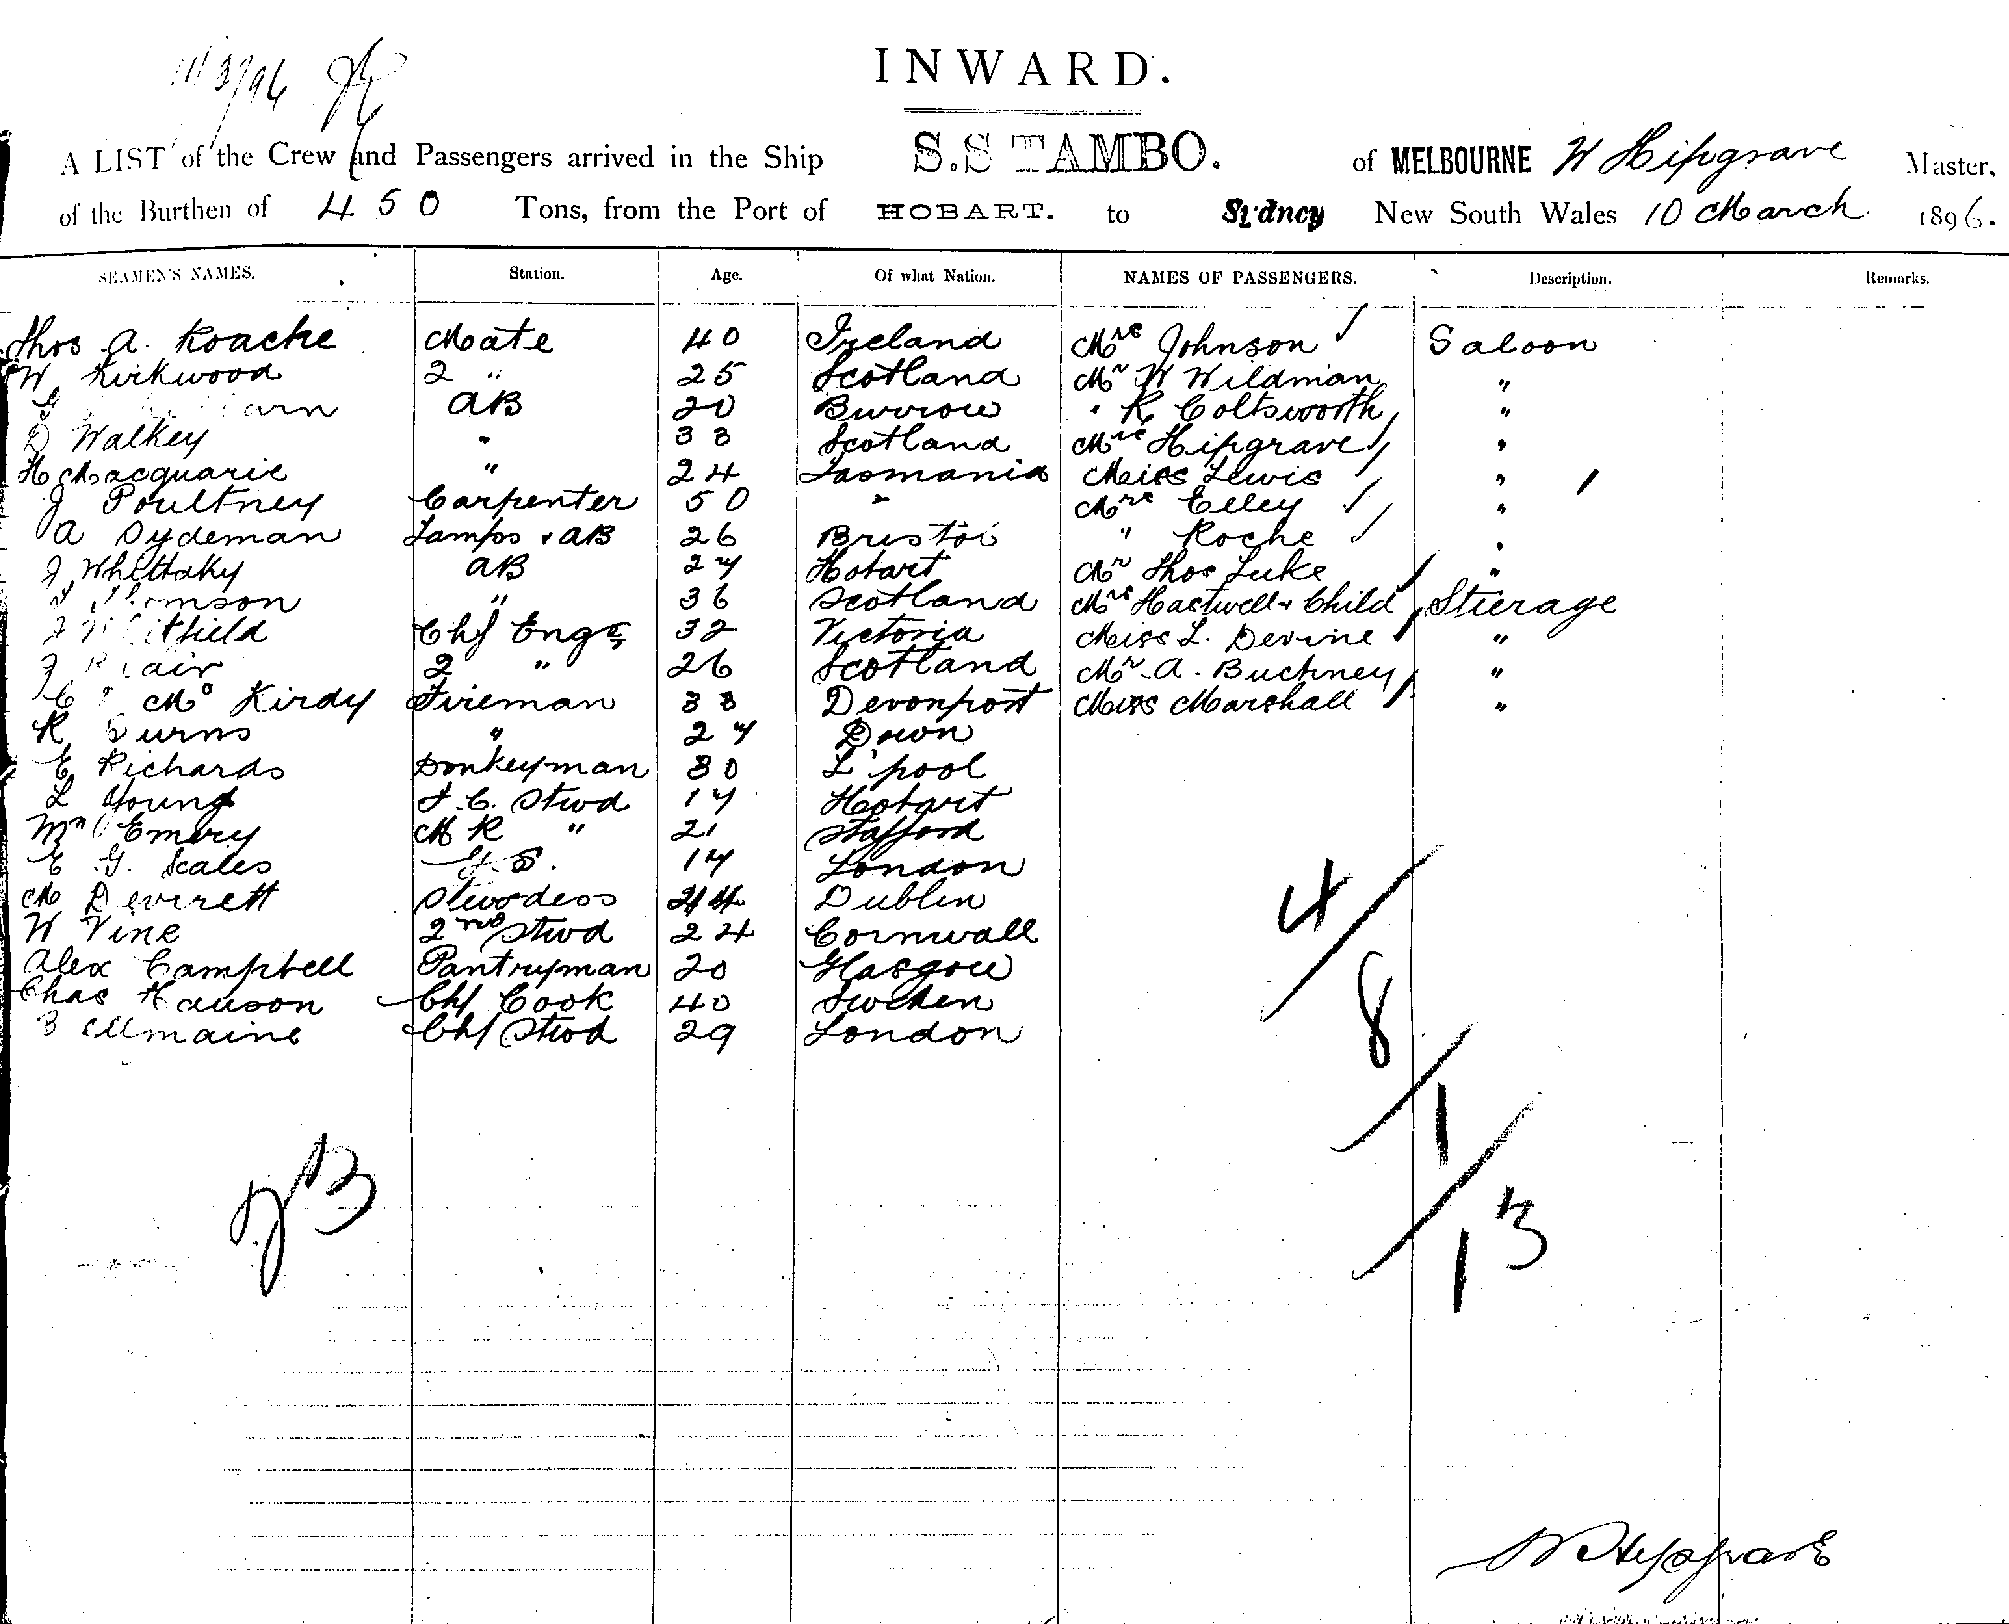 11/3/96
INWARD.
A LIST of the Crew and Passengers arrived in the Ship S.S TAMBO. of MELBOURNE W Hipgrave Master,
of the Burthen of 450 Tons, from the Port of HOBART. to Sydney New South Wales 10 March 1896.
SEAMEN'S NAMES. Station. Age. Of what Nation. NAMES OF PASSENGERS. Description. Remarks.
Thos A. Roache Mate 40 Ireland Mrs Johnson Saloon
W Kirkwood 2 " 25 Scotland Mr W Wildman "
AB 20 " R Coltsworth "
D Walkey " 33 Scotland Mrs Hipgrave "
H Macquarie " 24 Tasmania Miss Lewis "
J Poultney Carpenter 50 " Mrs Elley "
A Dydeman Lamps & AB 26 Bristol " Roche "
J Whittaky AB 27 Hobart Mr Thos Luke "
Thomson " 36 Scotland Mrs Hastwell & Child Stierage
J Whitfield Chf Engr 32 Victoria Miss L. Devine "
J Blair 2 " 26 Scotland Mr A. Buckney "
Mc Kirdy Fireman 33 Devonport Miss Marshall "
R Burns " 27 Down
E Richards Donkeyman 30 L'pool
L Young F.C. Stwd 17 Hobart
Wm Emery M R " 21 Stafford
E G. Scales G.S. 17 London
M Deverett Stwodess 44 Dublin
W Vine 2nd Stwd 24 Cornwall
Alex Campbell Pantryman 20 Glasgow
Chas Hauson Chf Cook 40 Sweden
B Allmaine Chf Stwd 29 London
4/8/1/13
JB
W Hipgrave